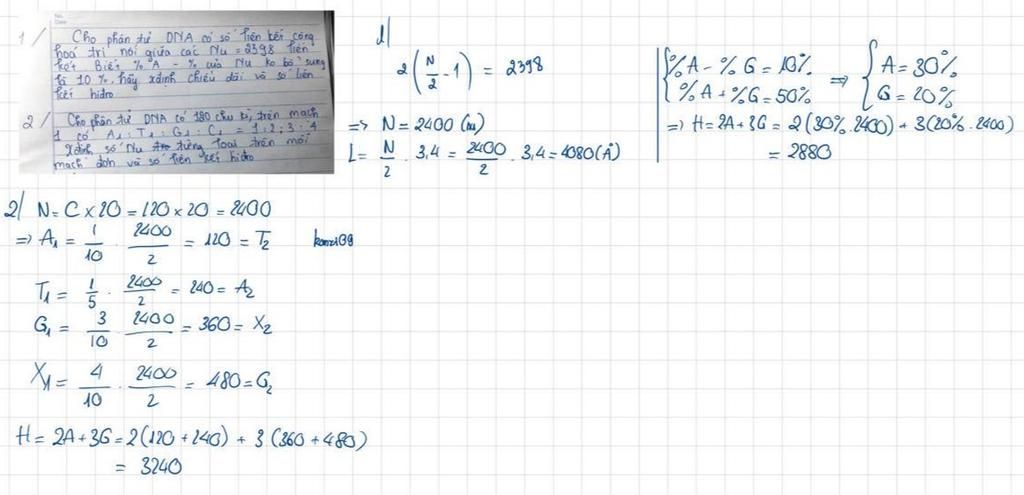 1/ Cho phân tử DNA có số liên kết cộng
hoá trị nối giữa các Nu = 2398 liên
kết Biết %A - % của Nu ko bổ sung
là 10%, hãy xđịnh chiều dài và số liên
kết hidro
2/ Cho phân tử DNA có 180 chu kì, trên mạch
1 có A1 : T1 : G1 : C1 = 1 : 2 : 3 : 4
Xđịnh số Nu từng loại trên mỗi
mạch đơn và số liên kết hidro
1/
2(N/2 - 1) = 2398
=> N = 2400 (nu)
L = N/2 . 3,4 = 2400/2 . 3,4 = 4080 (Å)
{%A - %G = 10% => {A = 30%
{%A + %G = 50% {G = 20%
=> H = 2A + 3G = 2(30%.2400) + 3(20%.2400)
= 2880
2/ N = C x 20 = 120 x 20 = 2400
=> A1 = 1/10 . 2400/2 = 120 = T2
T1 = 1/5 . 2400/2 = 240 = A2
G1 = 3/10 . 2400/2 = 360 = X2
X1 = 4/10 . 2400/2 = 480 = G2
H = 2A + 3G = 2(120 + 240) + 3(360 + 480)
= 3240